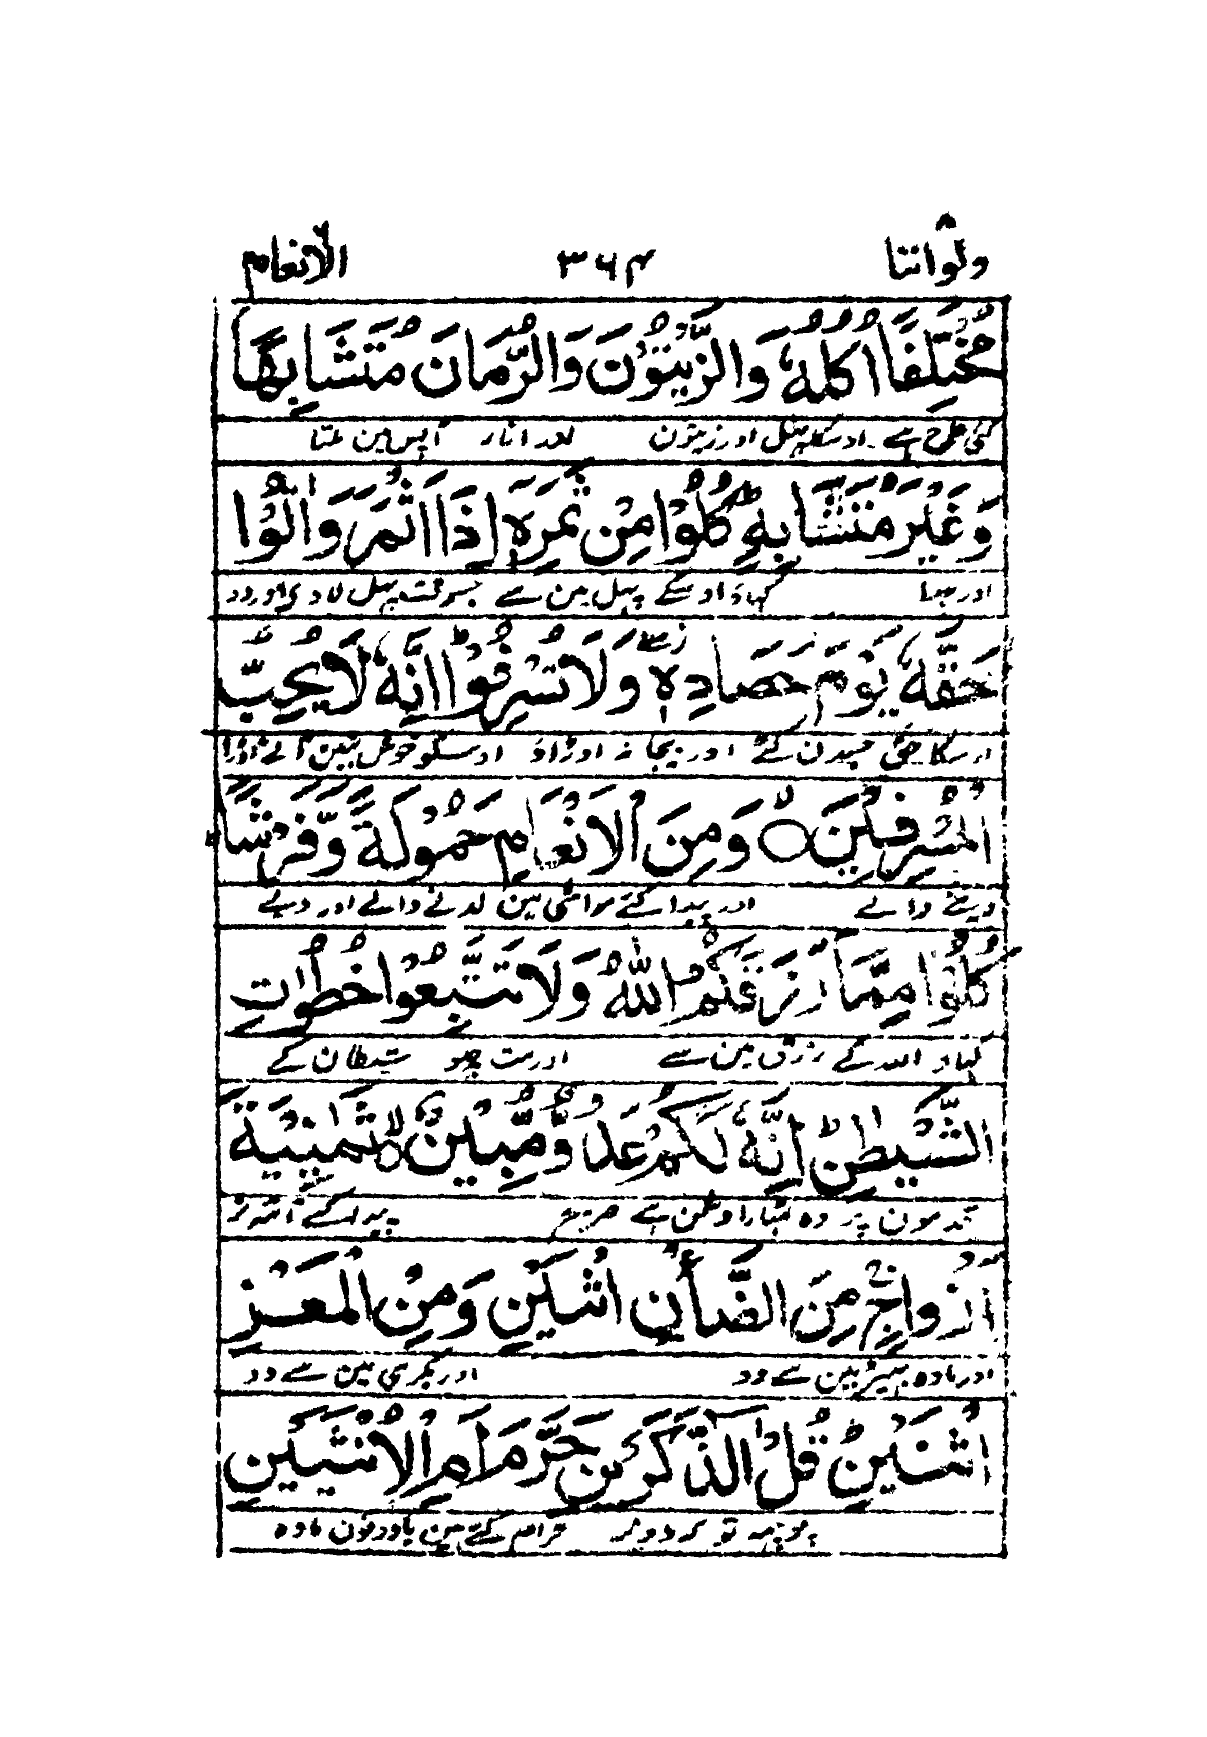 ولواننا ۳۶۴ الانعام
مُخْتَلِفًا اُكُلُهٗ وَالزَّيْتُوْنَ وَالرُّمَّانَ مُتَشَابِهًا
کئی طرح ہے اوسکا پھل اور زیتون اور انار آپس مین ملتا
وَّغَيْرَ مُتَشَابِهٍ كُلُوْا مِنْ ثَمَرِهٖٓ اِذَآ اَثْمَرَ وَاٰتُوْا
اور جدا کھاؤ اوسکے پھل مین سے جسوقت پھل لاوی اور دو
حَقَّهٗ يَوْمَ حَصَادِهٖ وَلَا تُسْرِفُوْا اِنَّهٗ لَا يُحِبُّ
اوسکا حق جسدن کٹے اور بیجا نہ اوڑاؤ اوسکو خوش نہین آتے اوڑا
الْمُسْرِفِيْنَ وَمِنَ الْاَنْعَامِ حَمُوْلَةً وَّفَرْشًا
دینے والے اور پیدا کئے مواشی مین لدنے والے اور دبے
كُلُوْا مِمَّا رَزَقَكُمُ اللّٰهُ وَلَا تَتَّبِعُوْا خُطُوٰتِ
کھاو اللہ کے رزق مین سے اور مت چلو شیطان کے
الشَّيْطٰنِ اِنَّهٗ لَكُمْ عَدُوٌّ مُّبِيْنٌ ثَمٰنِيَةَ
قدمون پر وہ تمہارا دشمن ہے صریح پیدا کئے آٹھ نر
اَزْوَاجٍ مِنَ الضَّأْنِ اثْنَيْنِ وَمِنَ الْمَعْزِ
اور مادہ بھیڑ مین سے دو اور بکری مین سے دو
اثْنَيْنِ قُلْ ءٰٓالذَّكَرَيْنِ حَرَّمَ اَمِ الْاُنْثَيَيْنِ
پوچھ تو کہ دونو نر حرام کئے ہین یا دونون مادہ